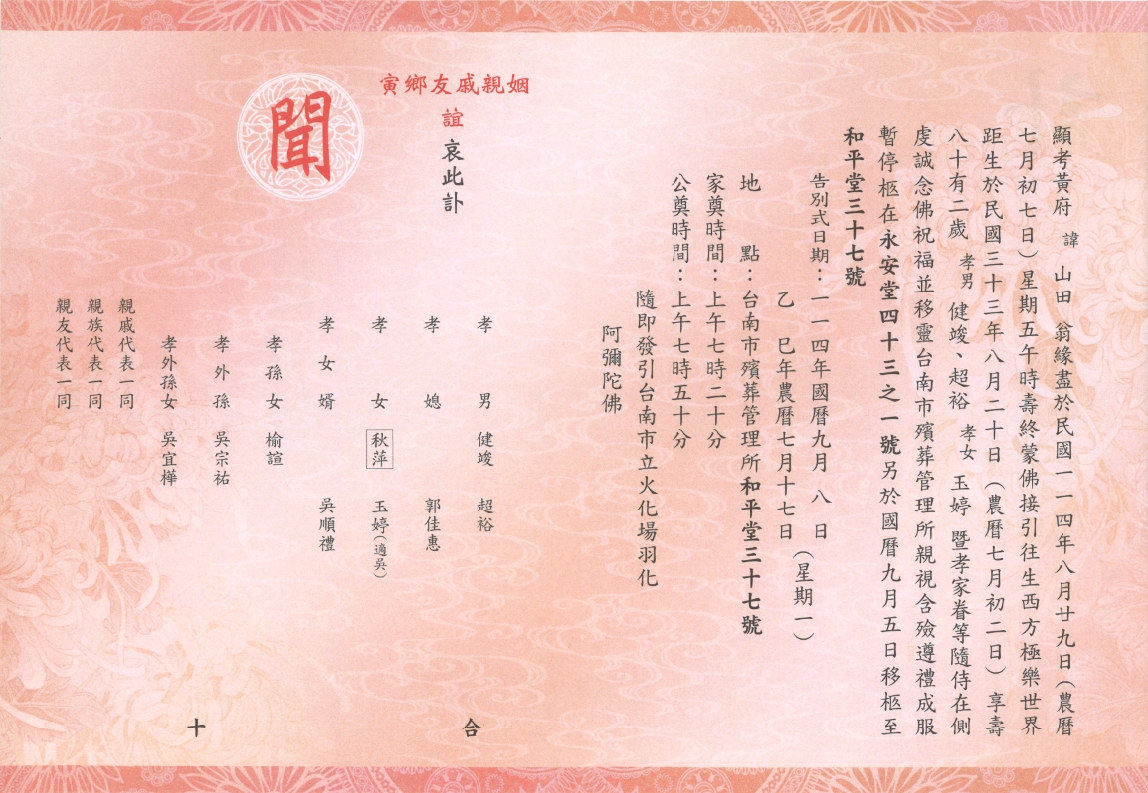 顯考黃府 諱 山田 翁緣盡於民國一一四年八月廿九日(農曆
七月初七日)星期五午時壽終蒙佛接引往生西方極樂世界
距生於民國三十三年八月二十日(農曆七月初二日)享壽
八十有二歲 孝男 健竣、超裕 孝女 玉婷 暨孝家眷等隨侍在側
虔誠念佛祝福並移靈台南市殯葬管理所親視含殮遵禮成服
暫停柩在永安堂四十三之一號另於國曆九月五日移柩至
和平堂三十七號
告別式日期：一一四年國曆九月 八 日(星期一)
乙 巳年農曆七月十七日
地 點：台南市殯葬管理所和平堂三十七號
家奠時間：上午七時二十分
公奠時間：上午七時五十分
隨即發引台南市立火化場羽化
阿彌陀佛
姻親戚友鄉寅
誼 哀此訃
聞
孝 男 健竣 超裕
孝 媳 郭佳惠
孝 女 秋萍 玉婷(適吳)
孝 女 婿 吳順禮
孝 孫 女 榆諠
孝 外 孫 吳宗祐
孝外孫女 吳宜樺
親戚代表一同
親族代表一同
親友代表一同
合 十